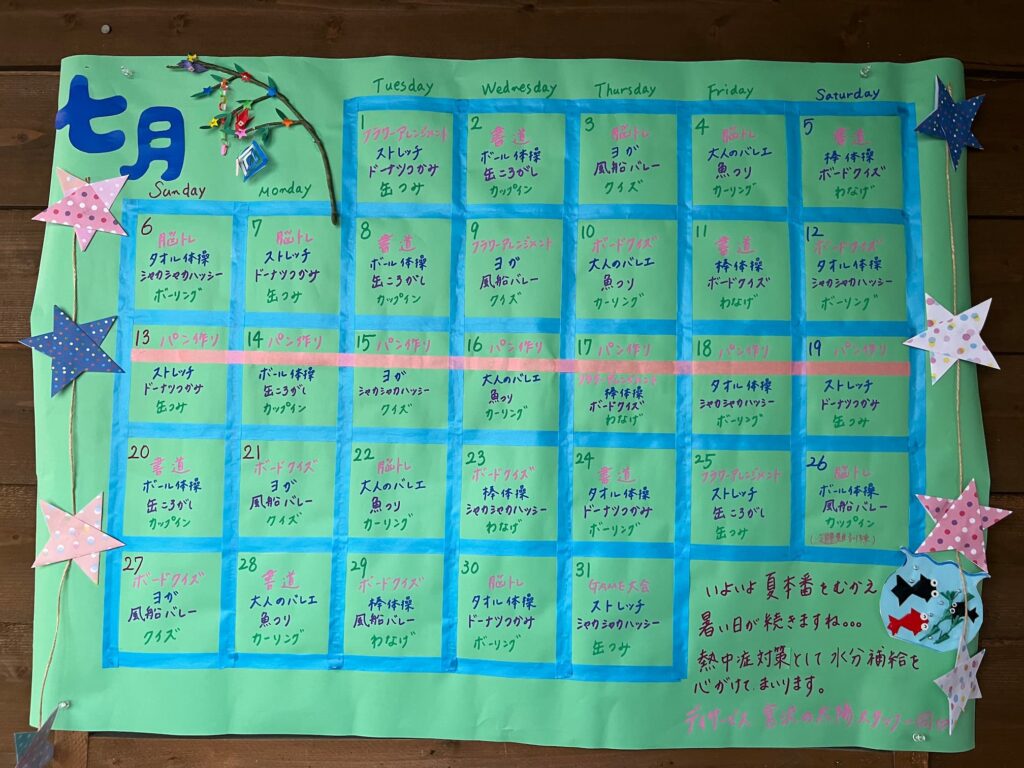 七月
Tuesday Wednesday Thursday Friday Saturday
Sunday Monday
1
フラワーアレンジメント
ストレッチ
ドーナツつかみ
缶つみ
2
書道
ボール体操
缶ころがし
カップイン
3
脳トレ
ヨガ
風船バレー
クイズ
4
脳トレ
大人のバレエ
魚つり
カーリング
5
書道
棒体操
ボードクイズ
わなげ
6
脳トレ
タオル体操
シャカシャカハッシー
ボーリング
7
脳トレ
ストレッチ
ドーナツつかみ
缶つみ
8
書道
ボール体操
缶ころがし
カップイン
9
フラワーアレンジメント
ヨガ
風船バレー
クイズ
10
ボードクイズ
大人のバレエ
魚つり
カーリング
11
書道
棒体操
ボードクイズ
わなげ
12
ボードクイズ
タオル体操
シャカシャカハッシー
ボーリング
13 パン作り
ストレッチ
ドーナツつかみ
缶つみ
14 パン作り
ボール体操
缶ころがし
カップイン
15 パン作り
ヨガ
シャカシャカハッシー
クイズ
16 パン作り
大人のバレエ
魚つり
カーリング
17 パン作り
フラワーアレンジメント
棒体操
ボードクイズ
わなげ
18 パン作り
タオル体操
シャカシャカハッシー
ボーリング
19 パン作り
ストレッチ
ドーナツつかみ
缶つみ
20
書道
ボール体操
缶ころがし
カップイン
21
ボードクイズ
ヨガ
風船バレー
クイズ
22
脳トレ
大人のバレエ
魚つり
カーリング
23
ボードクイズ
棒体操
シャカシャカハッシー
わなげ
24
書道
タオル体操
ドーナツつかみ
ボーリング
25
フラワーアレンジメント
ストレッチ
缶ころがし
缶つみ
26
脳トレ
ボール体操
風船バレー
カップイン
27
ボードクイズ
ヨガ
風船バレー
クイズ
28
書道
大人のバレエ
魚つり
カーリング
29
ボードクイズ
棒体操
風船バレー
わなげ
30
脳トレ
タオル体操
ドーナツつかみ
ボーリング
31
GAME大会
ストレッチ
シャカシャカハッシー
缶つみ
いよいよ夏本番をむかえ
暑い日が続きますね...
熱中症対策として水分補給を
心がけてまいります。
デイサービス の太陽スタッフ一同